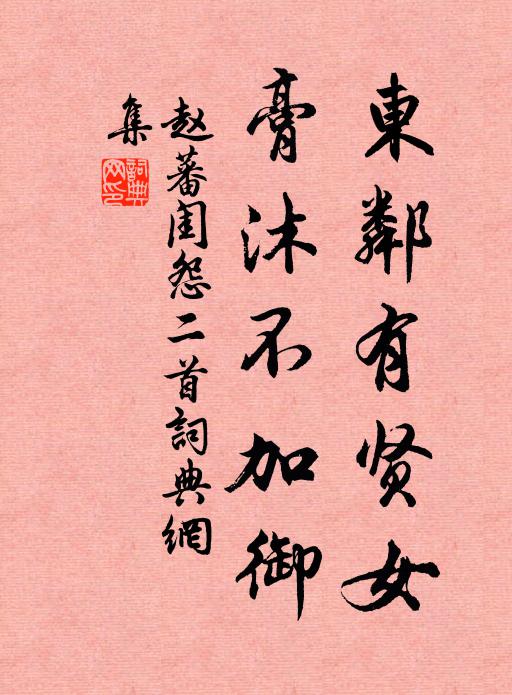 東鄰有贤女
膏沐不加御
赵蕃闺怨二首詞典網
集
詞典
网印